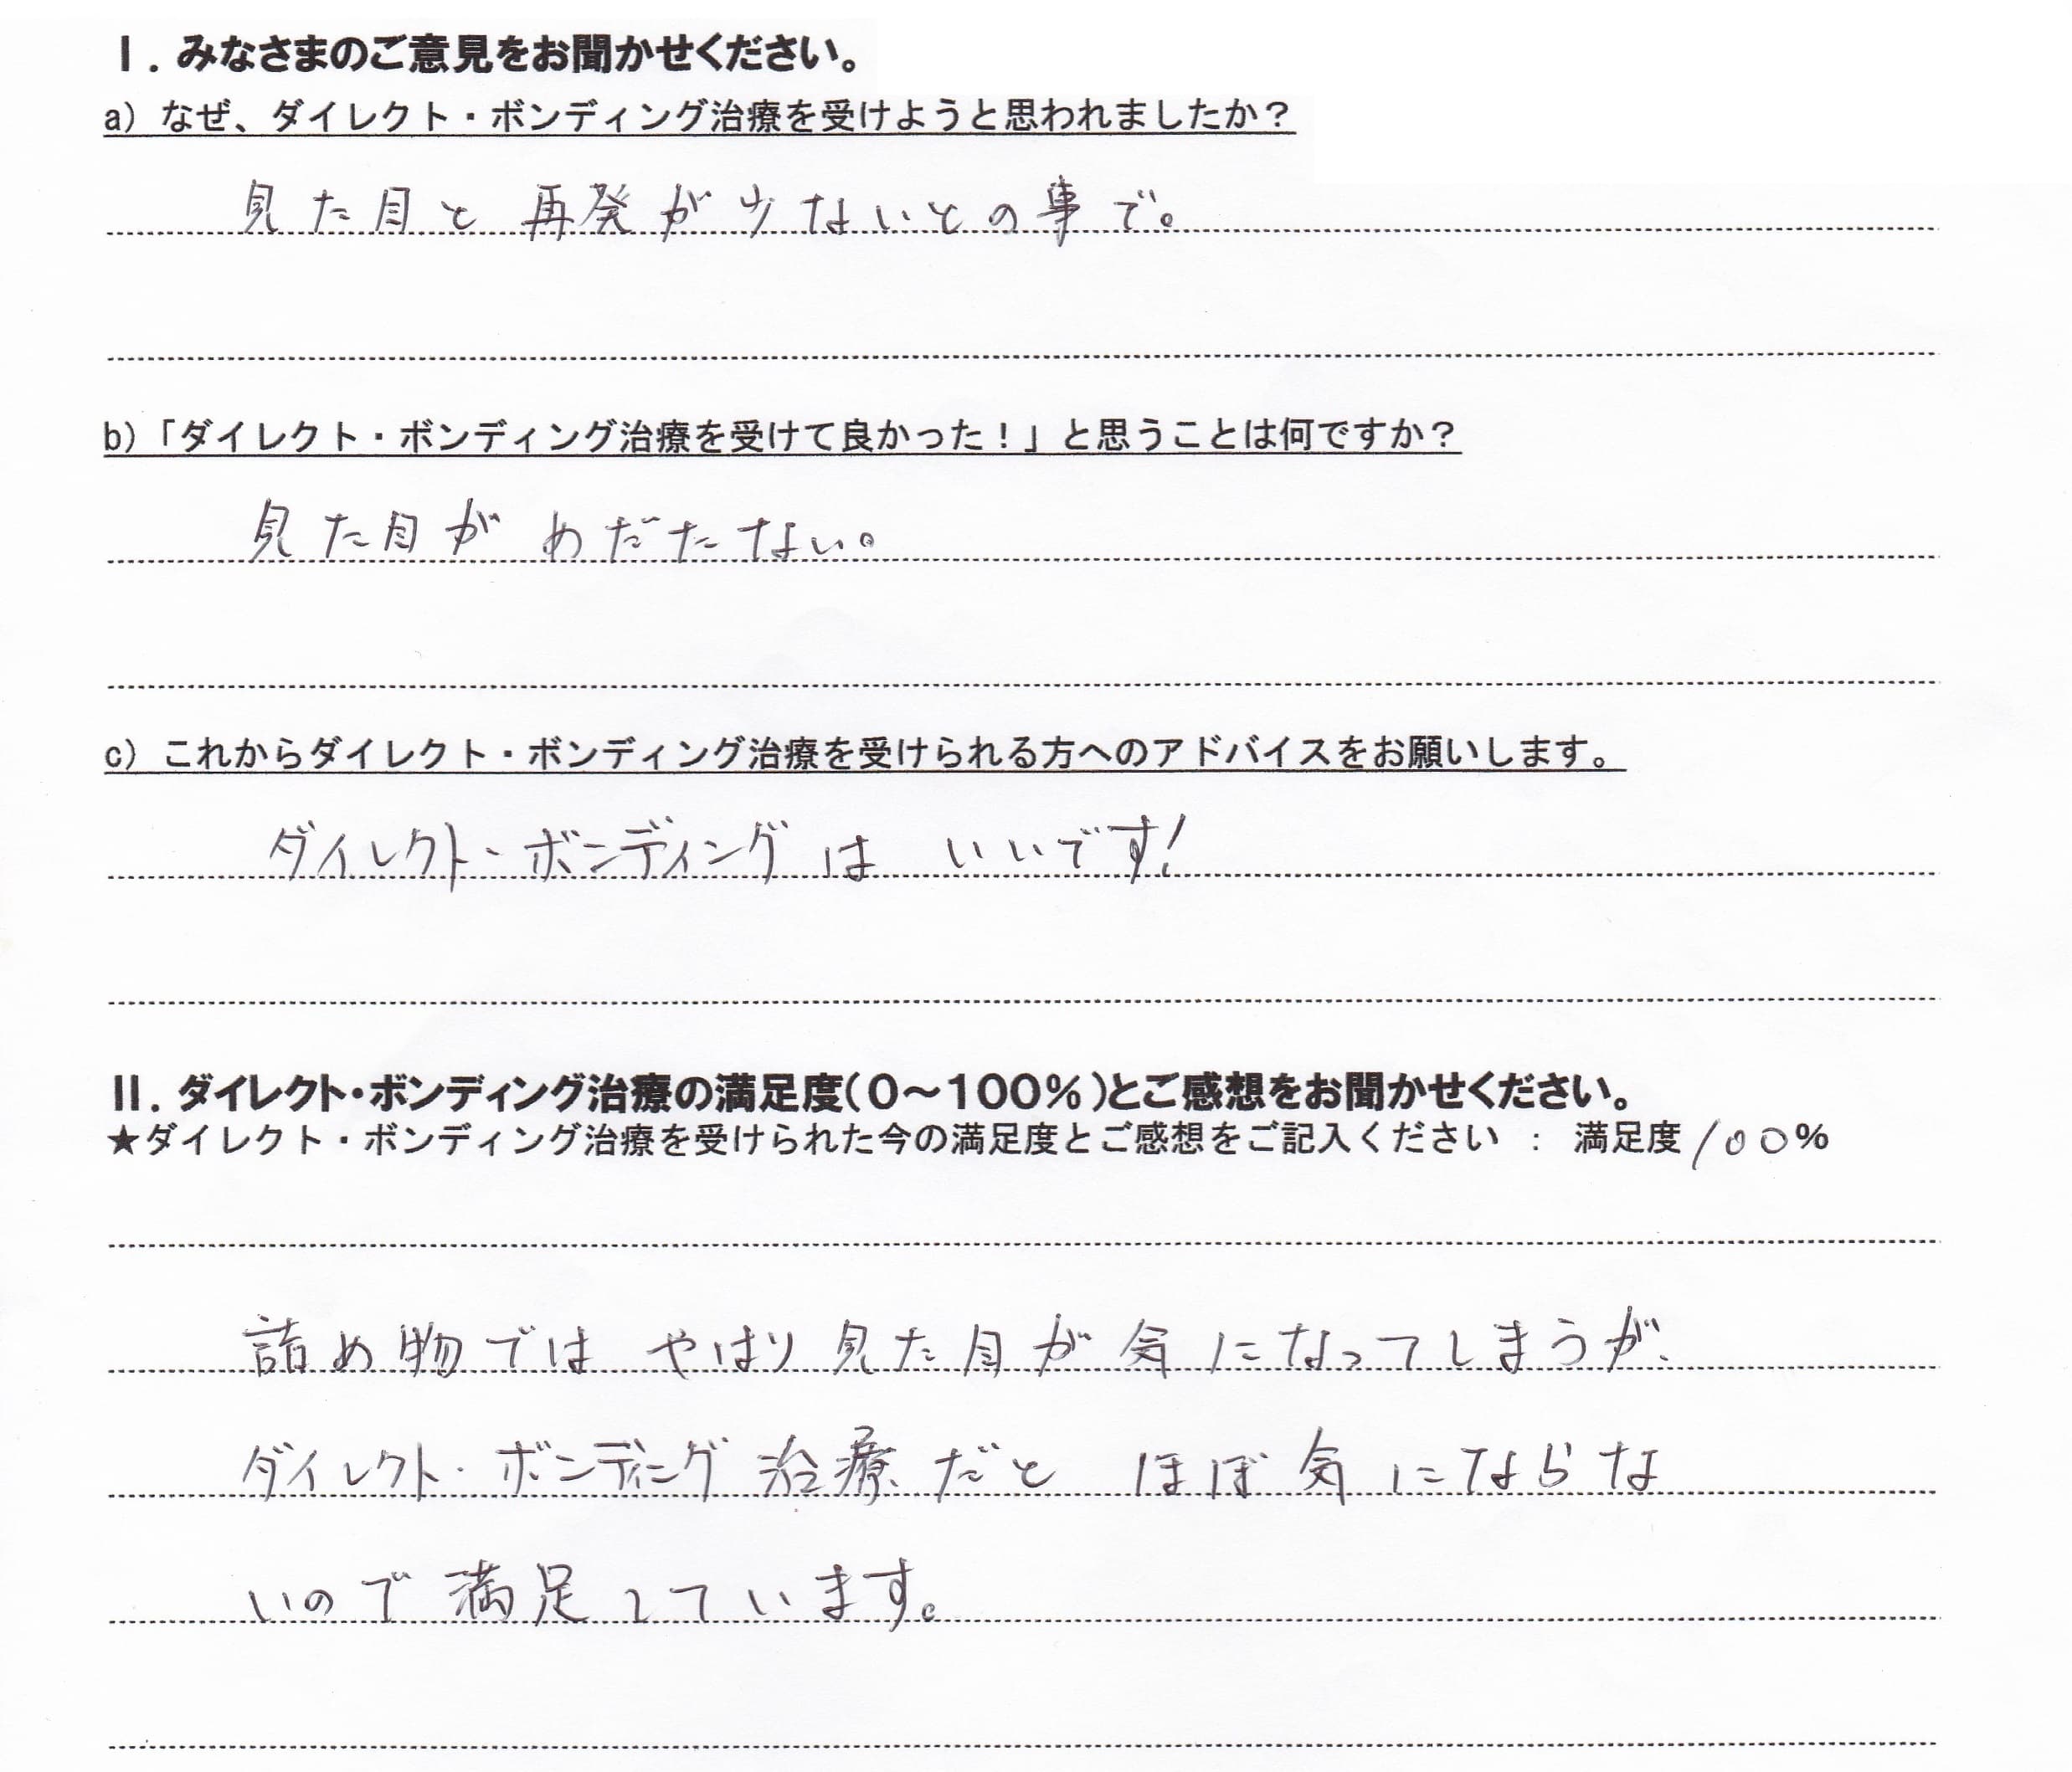 Ⅰ．みなさまのご意見をお聞かせください。
a) なぜ、ダイレクト・ボンディング治療を受けようと思われましたか？
見た目と再発が少ないとの事で。
b)「ダイレクト・ボンディング治療を受けて良かった！」と思うことは何ですか？
見た目がめだたない。
c) これからダイレクト・ボンディング治療を受けられる方へのアドバイスをお願いします。
ダイレクト・ボンディングは いいです!
Ⅱ．ダイレクト・ボンディング治療の満足度（０～１００％）とご感想をお聞かせください。
★ダイレクト・ボンディング治療を受けられた今の満足度とご感想をご記入ください ： 満足度 100％
詰め物では やはり見た目が気になってしまうが、
ダイレクト・ボンディング治療だと ほぼ気にならな
いので満足しています。